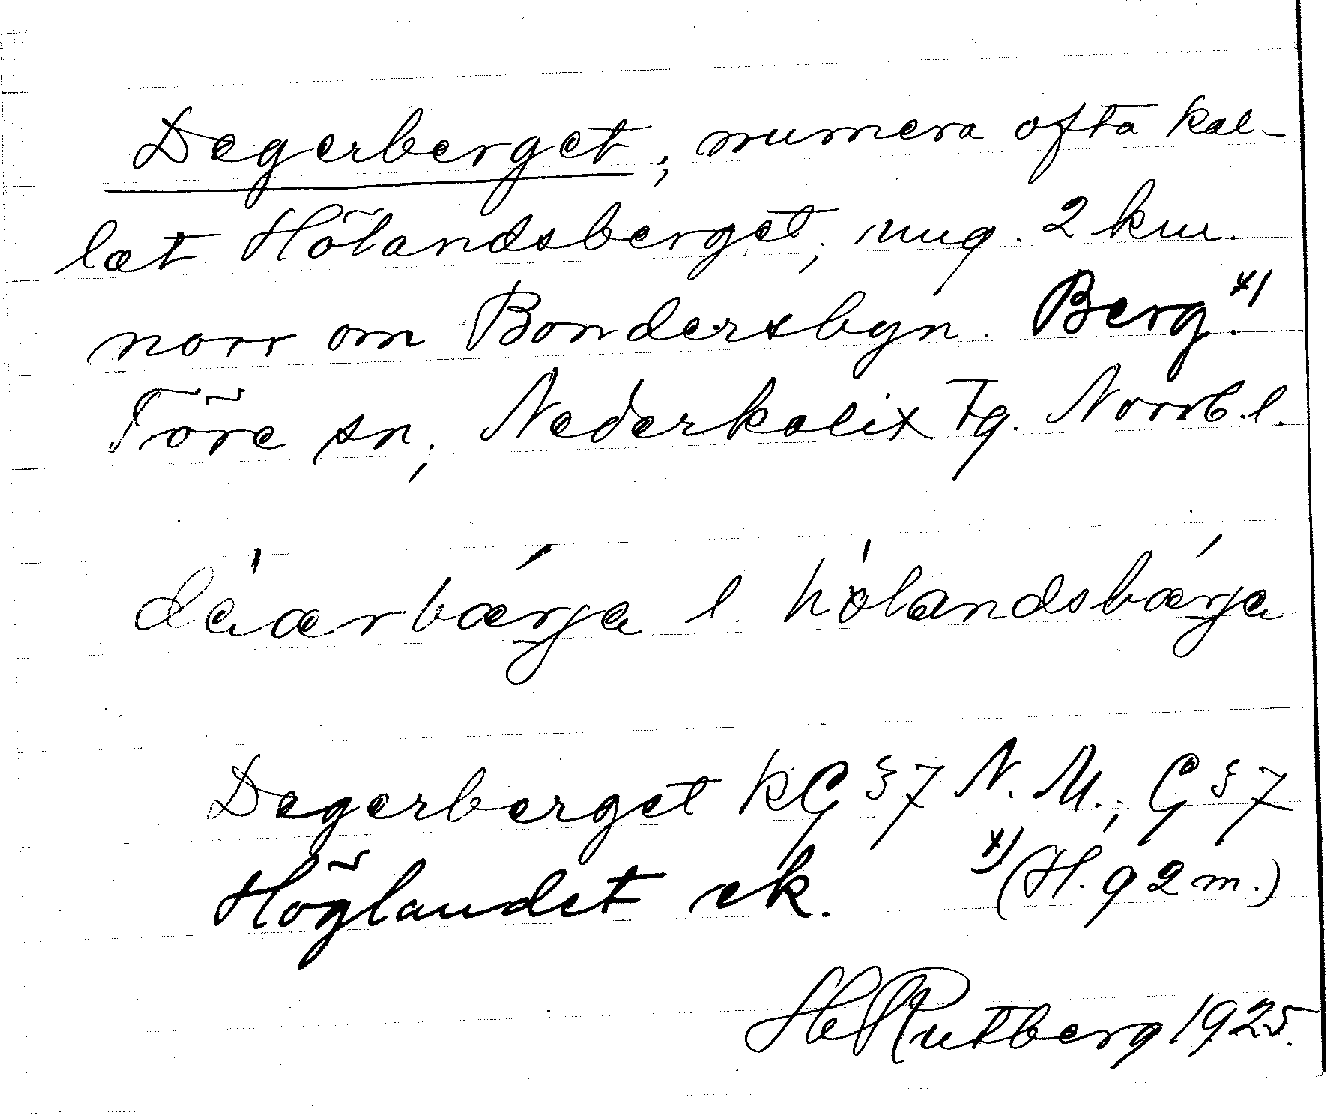 Degerberget, numera ofta kal-
lat Hölandsberget, ung. 2 km.
norr om Bondersbyn. Berg.x)
Töre sn, Nederkalix Tg. Norrb. l.
dèarbærja l hölandsbærja
Degerberget KG § 7 N. M., G § 7
Höglandet ek. x) (H. 92 m.)
H Rutberg 1925.